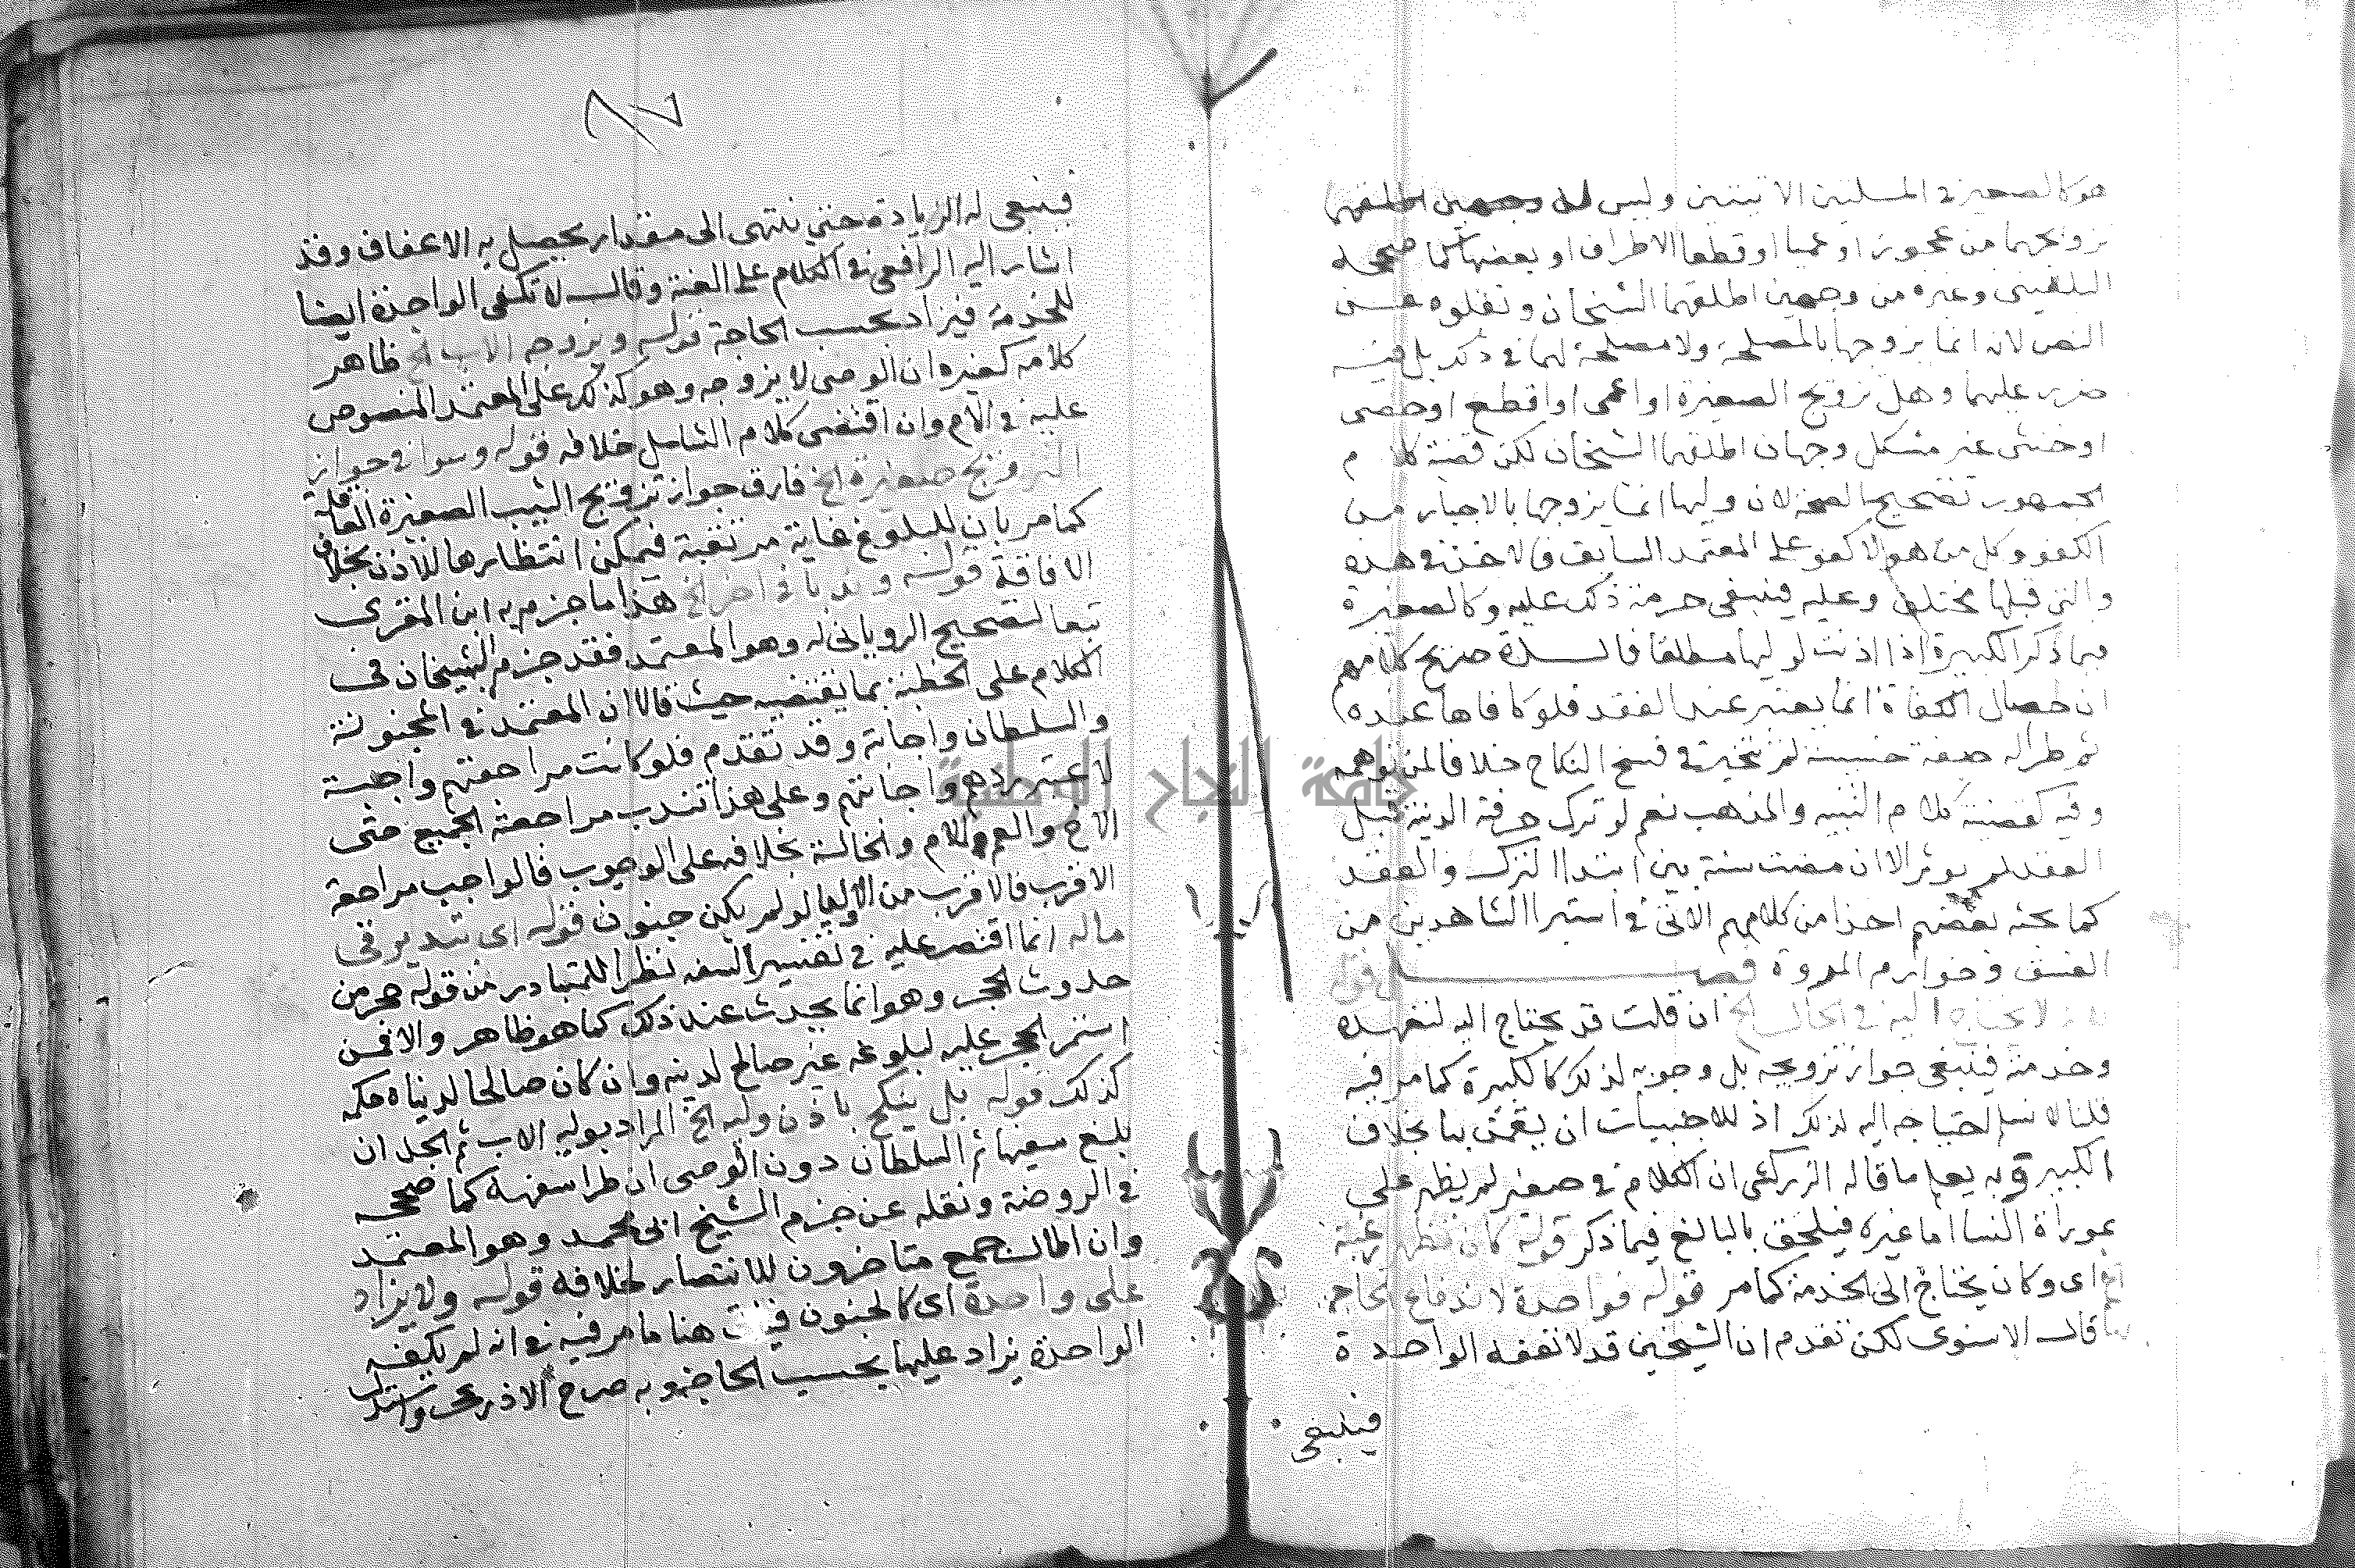 هو كالصحيز في المسلتين الاتيتين وليس له
تزويجهما من عجوز او عميا او قطعا الاطراف او بعضها كما صححه
البلقيني وغيره من وجهين اطلقهما الشيخان ونقلوه عن
النص لانه انما يزوجها بالمصلحة ولا مصلحة لهما في ذلك بل فيه
ضرر عليهما وهل تزويج الصغيرة او اعمى او اقطع او خصى
او خنثى غير مشكل وجهان اطلقهما الشيخان لكن قضية كلام
الجمهور تصحيح الصحة لان وليها انما يزوجها بالاجبار من
الكفو وكل من هولا كفو على المعتمد السابق في هذه
والتي قبلها مختلف وعليه فينبغى حرمة ذلك عليه وكالصغيرة
فيما ذكر الكبيرة اذا اذنت لوليها مطلقا صريح كلامهم
ان خصال الكفاة انما يعتبر عند العقد فلو كافاها عنده
ثم طراله صفة خسيسة لم تتخير في فسخ النكاح خلافا لمن توهمه
وفيه كقضية كلام التنبيه والمذهب نعم لو ترك حرفته الدنية قبل
العقد لم يوثر الا ان مضت سنة بين ابتدا الترك والعقد
كما بحثه بعضهم اخذا من كلامهم الاتى في استبرا الشاهد من
الفسق وخوارم المروة فصل قوله
لا يحتاج اليه في الحال الخ ان قلت قد يحتاج اليه لتعهده
وخدمته فينبغى جواز تزويجه بل وجوبه لذلك كالكبيرة كما مر فيه
قلنا لا نسلم احتياجه اليه لذلك اذ للاجنبيات ان يقمن بها بخلاف
الكبير وبه يعلم ما قاله الزركشى ان الكلام في صغير لم يظهر على
عورات النسا اما غيره فيلحق بالبالغ فيما ذكر قوله كان تظهر رغبته
الخ اى وكان يحتاج الى الخدمة كما مر قوله فواحدة لاندفاع الحاجة
بها قال الاسنوى لكن تقدم ان الشيخين قد لا تعفه الواحدة
فينبغى
٦٧
فينبغى له الزيادة حتى ينتهى الى مقدار يحصل به الاعفاف وقد
اشار اليه الرافعى في الكلام على العنة وقال لا تكفى الواحدة ايضا
للخدمة فيزاد بحسب الحاجة قوله ويزوجه الاب الخ ظاهر
كلامه كغيره ان الوصى لا يزوجه وهو كذلك على المعتمد المنصوص
عليه في الام وان اقتضى كلام الشامل خلافه قوله وسوا في جواز
التزويج صغيرة الخ فارق جواز تزويج الثيب الصغيرة العاقلة
كما مر بان للبلوغ غاية مرتقبة فيمكن انتظارها للاذن بخلاف
الافاقة قوله وندبا في اخر الخ هذا ما جزم به ابن المقرى
تبعا لتصحيح الرويانى له وهو المعتمد فقد جزم الشيخان في
الكلام على الخطبة بما يقتضيه حيث قالا ان المعتمد في المجنونة
والسلطان واجابته وقد تقدم فلو كانت مراجعتهم واجبة
لاعتبر ردهم واجابتهم وعلى هذا تندب مراجعة الجميع حتى
الاخ والعم والام والخالة بخلافه على الوجوب فالواجب مراجعة
الاقرب فالاقرب من الاوليا لو لم يكن جنون قوله اى بتبذير في
ماله انما اقتصر عليه في تفسير السفه نظرا للمتبادر من قوله حجر من
حدوث الحجر وهو انما يحدث عند ذلك كما هو ظاهر والا فمن
استمر الحجر عليه لبلوغه غير صالح لدينه وان كان صالحا لدنياه حكمه
كذلك قوله بل ينكح باذن وليه الخ المراد بوليه الاب ثم الجد ان
بلغ سفيها ثم السلطان دون الوصى ان طرا سفهه كما صححه
في الروضة ونقله عن جزم الشيخ ابى محمد وهو المعتمد
وان اطال جمع متاخرون للانتصار لخلافه قوله ولا يزاد
على واحدة اى كالمجنون هنا ما مر فيه في انه لم يكفيه
الواحدة يزاد عليها بحسب الحاجة وبه صرح الاذرعى واستدل